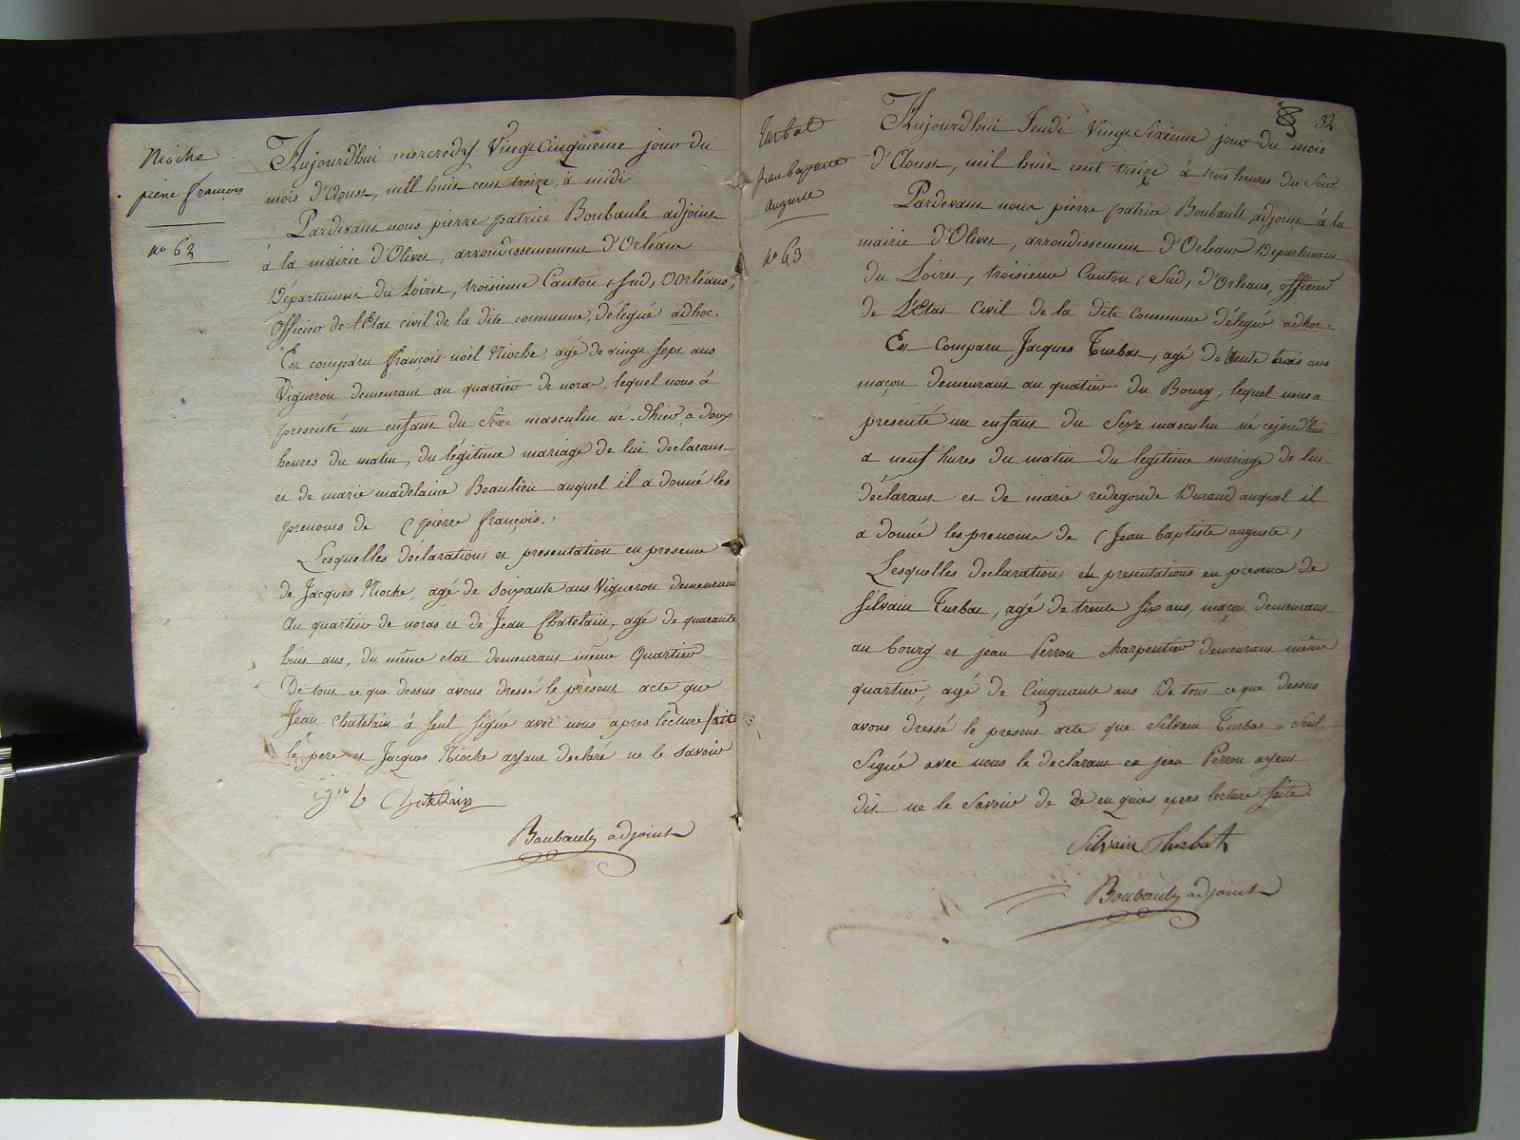 Nioche
pierre françois
no 62
Aujourd'hui mercredy Vingt Cinquieme jour du
mois d'Aoust, mill huit cent treize, à midi
Pardevant nous pierre patrice Boubault adjoint
à la mairie d'Olivet, arrondissement d'Orléans
Département du Loiret, troisieme Canton, Sud, d'Orléans,
officier de l'Etat civil de la dite commune, délégué adhoc.
Est comparu françois noël Nioche agé de vingt sept ans
Vigneron demeurant au quartier de noras, lequel nous à
presenté un enfant du Sexe masculin né d'hier a deux
heures du matin, du légitime mariage de lui declarant
et de marie madelaine Beaulieu auquel il a donné les
prenoms de (pierre françois.)
Lesquelles déclaration et presentation en presence
de Jacques Nioche, agé de Soixante ans Vigneron demeurant
au quartier de noras et de Jean Chatelain, agé de quarante
huit ans, du même etat demeurant même Quartier
De tout ce que dessus avons dressé le présent acte que
Jean Chatelain à seul signé avec nous apres lecture faite
le pere et Jacques Nioche ayant declaré ne le savoir
Chatelain
Boubault adjoint
32
turbat
jean baptiste
auguste
no 63
Aujourd'hui Jeudi Vingt Sixieme jour du mois
d'Aoust, mil huit cent treize à trois heures du Soir
Pardevant nous pierre patrice Boubault, adjoint à la
mairie d'Olivet, arrondissement d'Orléans Departement
du Loiret, troisieme Canton, Sud, d'Orleans, officier
de L'Etat Civil de la dite Commune délégué adhoc.
Est Comparu Jacques Turbat, agé de trente trois ans
maçon demeurant au quatier du Bourg, lequel nous a
presenté un enfant du Sexe masculin né cejourd'hui
a neuf hures du matin du legitime mariage de lui
déclarant et de marie redegonde Durand auquel il
a donné les prenoms de (Jean baptiste auguste)
Lesquelles declaration et presentations en presence de
Silvain Turbat, agé de trente six ans, maçon demeurant
au bourg et jean Perrou charpentier demeurant même
quartier, agé de Cinquante ans De tout ce que dessus
avons dressé le present acte que Silvain Turbat a Seul
Signé avec nous le declarant et jean Perrou ayant
dit ne le Savoir de de enquis apres lecture faite
Silvain Thurbat
Boubault adjoint